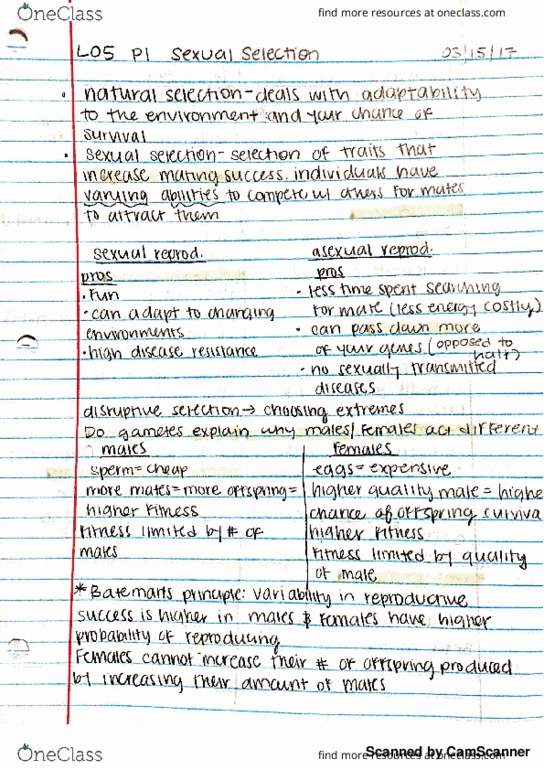 OneClass
find more resources at oneclass.com
LO5 P1 Sexual Selection 03/15/17
• natural selection-deals with adaptability
to the environment and your chance of
survival
• sexual selection-selection of traits that
increase mating success. individuals have
varying abilities to compete w/ others for mates
to attract them
sexual reprod. asexual reprod.
pros pros
• fun • less time spent searching
• can adapt to changing for mate (less energy costly)
environments • can pass down more
• high disease resistance of your genes (opposed to
half)
• no sexually transmitted
diseases
disruptive selection → choosing extremes
Do gametes explain why males/females act different
males females
sperm=cheap eggs=expensive
more mates=more offspring= higher quality male = highe
higher fitness chance of offspring surviva
fitness limited by # of higher fitness
mates fitness limited by quality
of male
* Batemans principle: variability in reproductive
success is higher in males & females have higher
probability of reproducing
Females cannot increase their # of offspring produced
by increasing their amount of mates
OneClass
find more resources at oneclass.com
Scanned by CamScanner